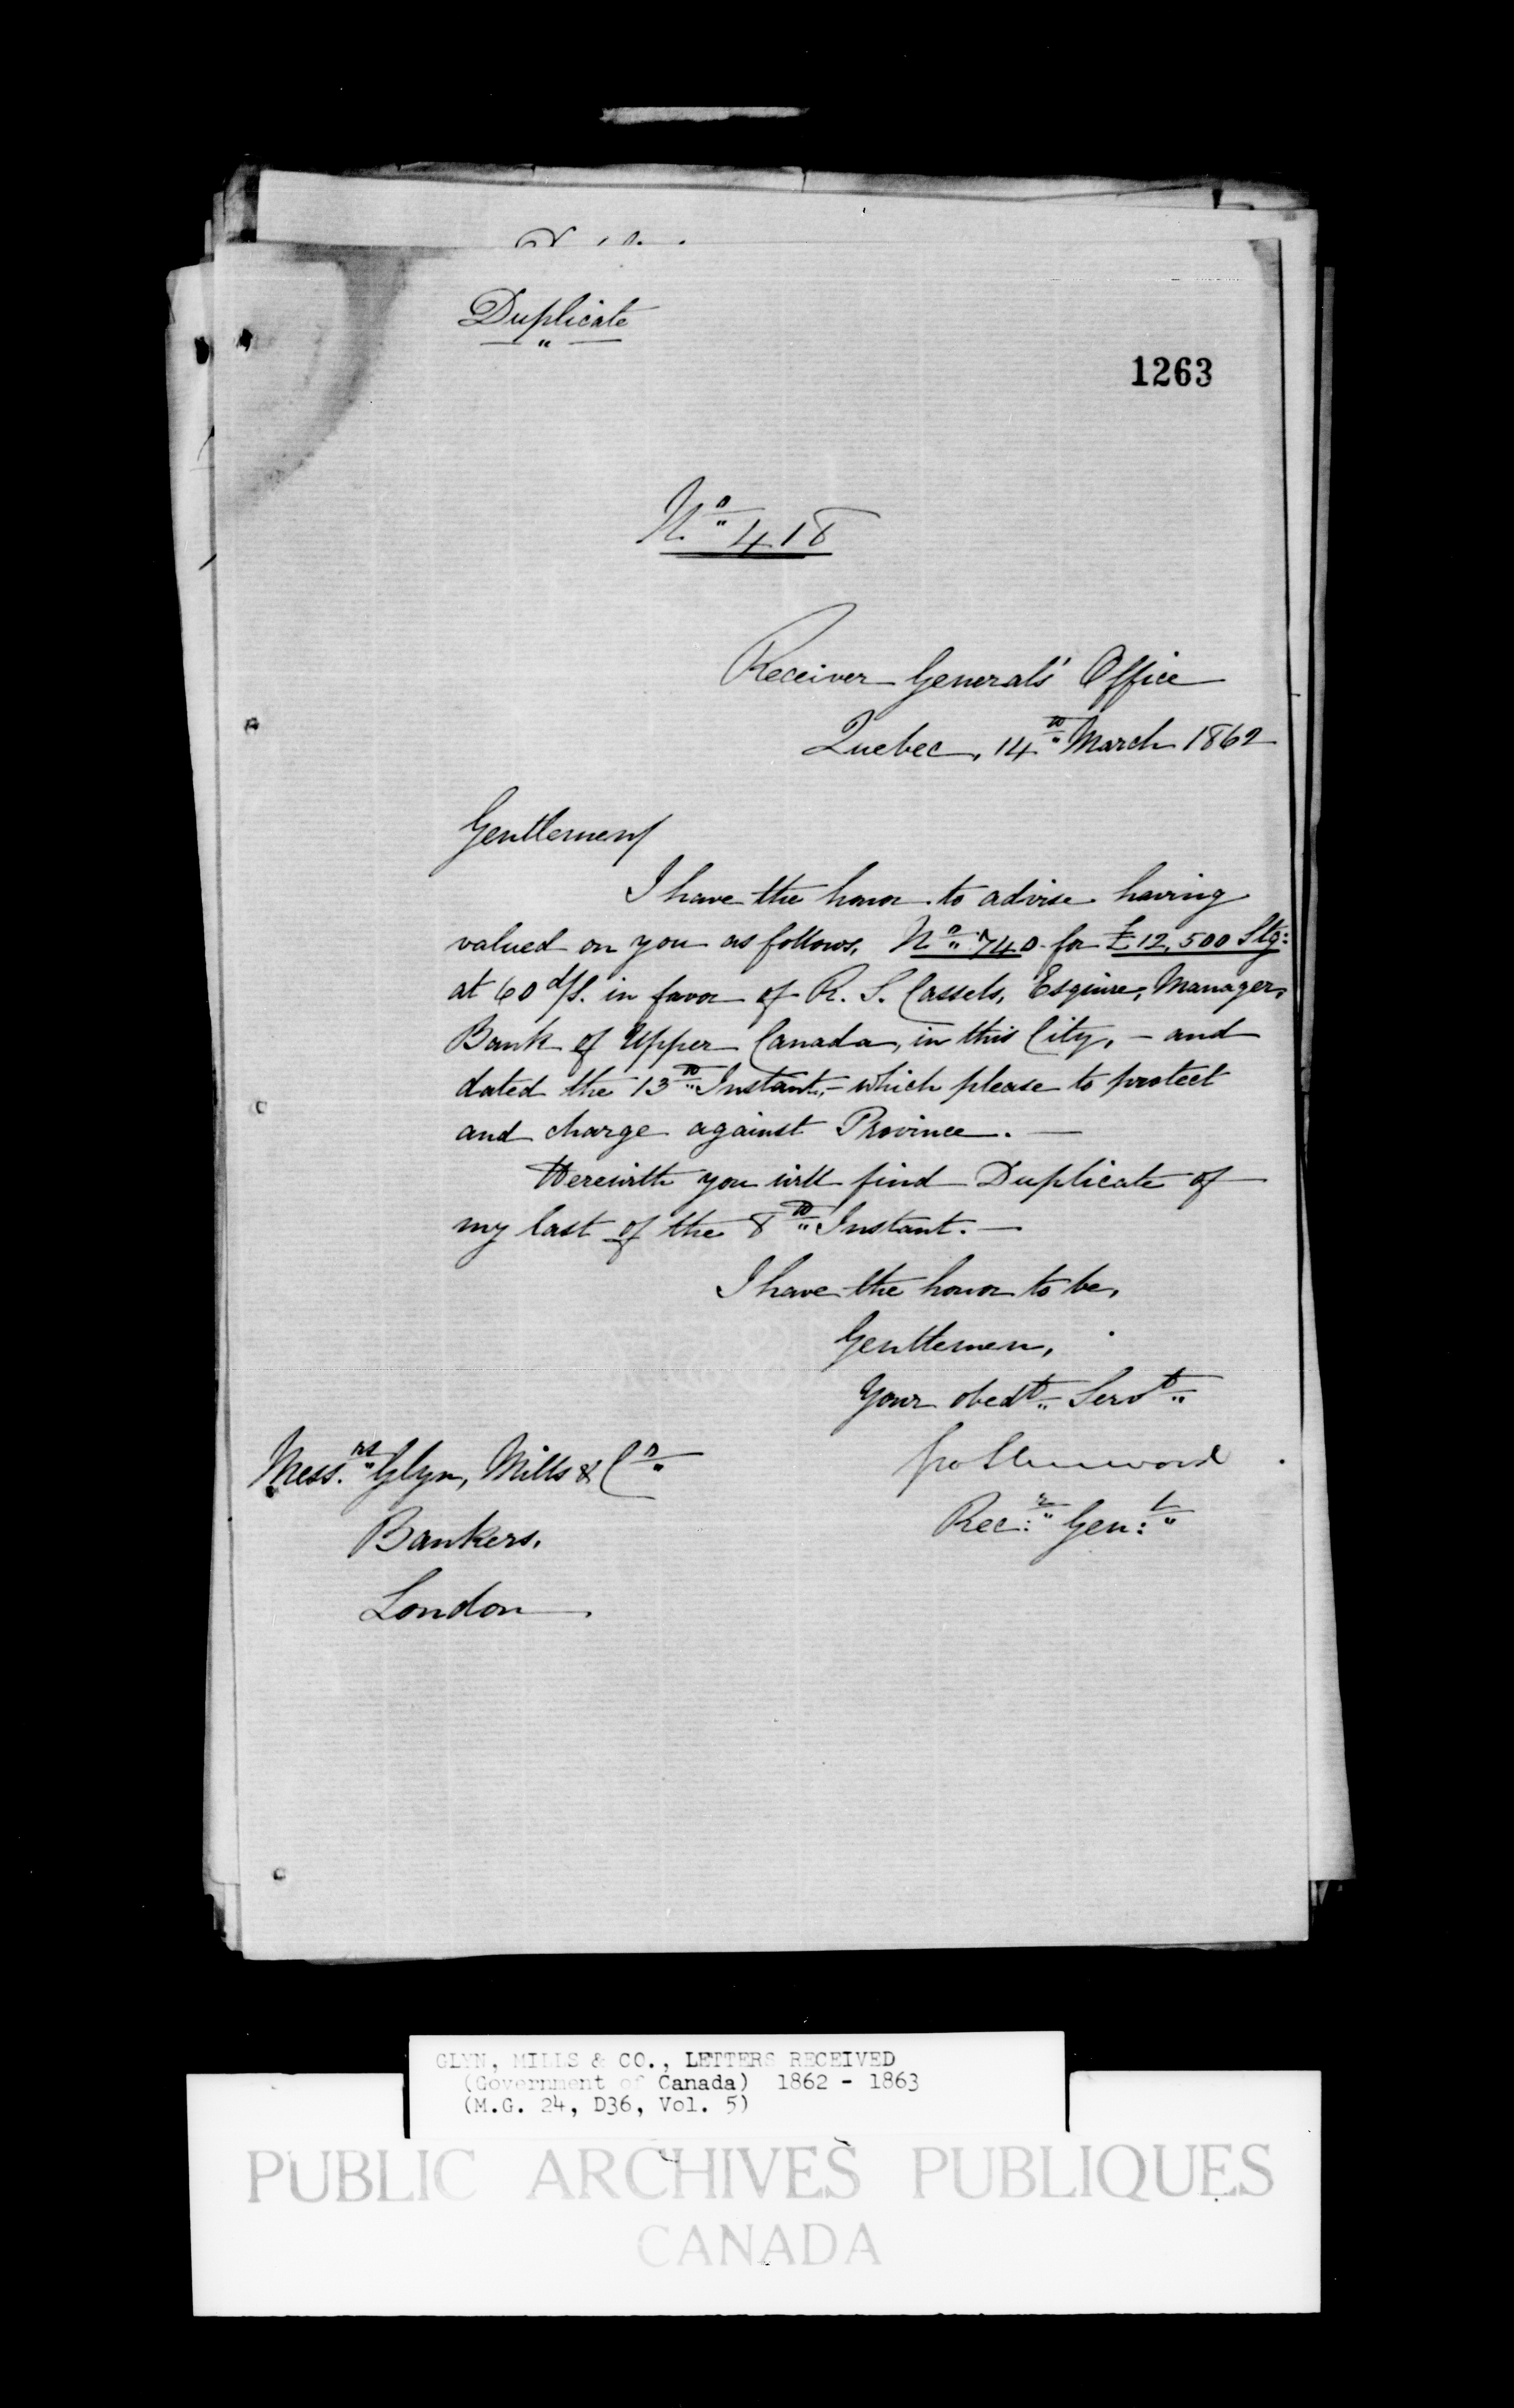 Duplicate
1263
No 418
Receiver Generals' Office
Quebec, 14th March 1862
Gentlemen/
I have the honor to advise having
valued on you as follows, No 740 for £12,500 Stg:
at 60 d/s. in favor of R. S. Cassels, Esquire, Manager,
Bank of Upper Canada, in this City, - and
dated the 13th Instant, - which please to protect
and charge against Province. -
Herewith you will find Duplicate of
my last of the 8th Instant. -
I have the honor to be,
Gentlemen,
Your obedt Servt
Messrs Glyn, Mills & Co
Recr: Genl:
Bankers.
London.
GLYN, MILLS & CO., LETTERS RECEIVED
(Government of Canada) 1862 - 1863
(M.G. 24, D36, Vol. 5)
PUBLIC ARCHIVES PUBLIQUES
CANADA